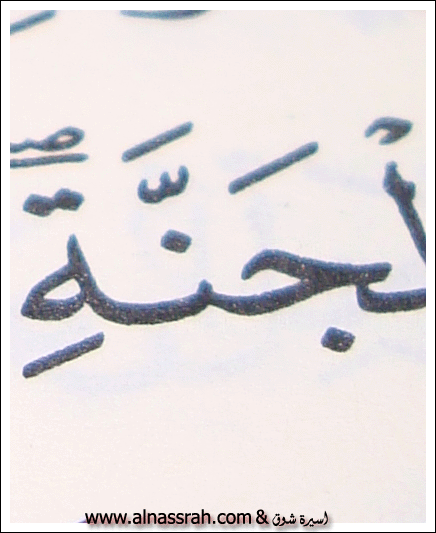 لْجَنَّةِ
www.alnassrah.com & اسيرة شوق